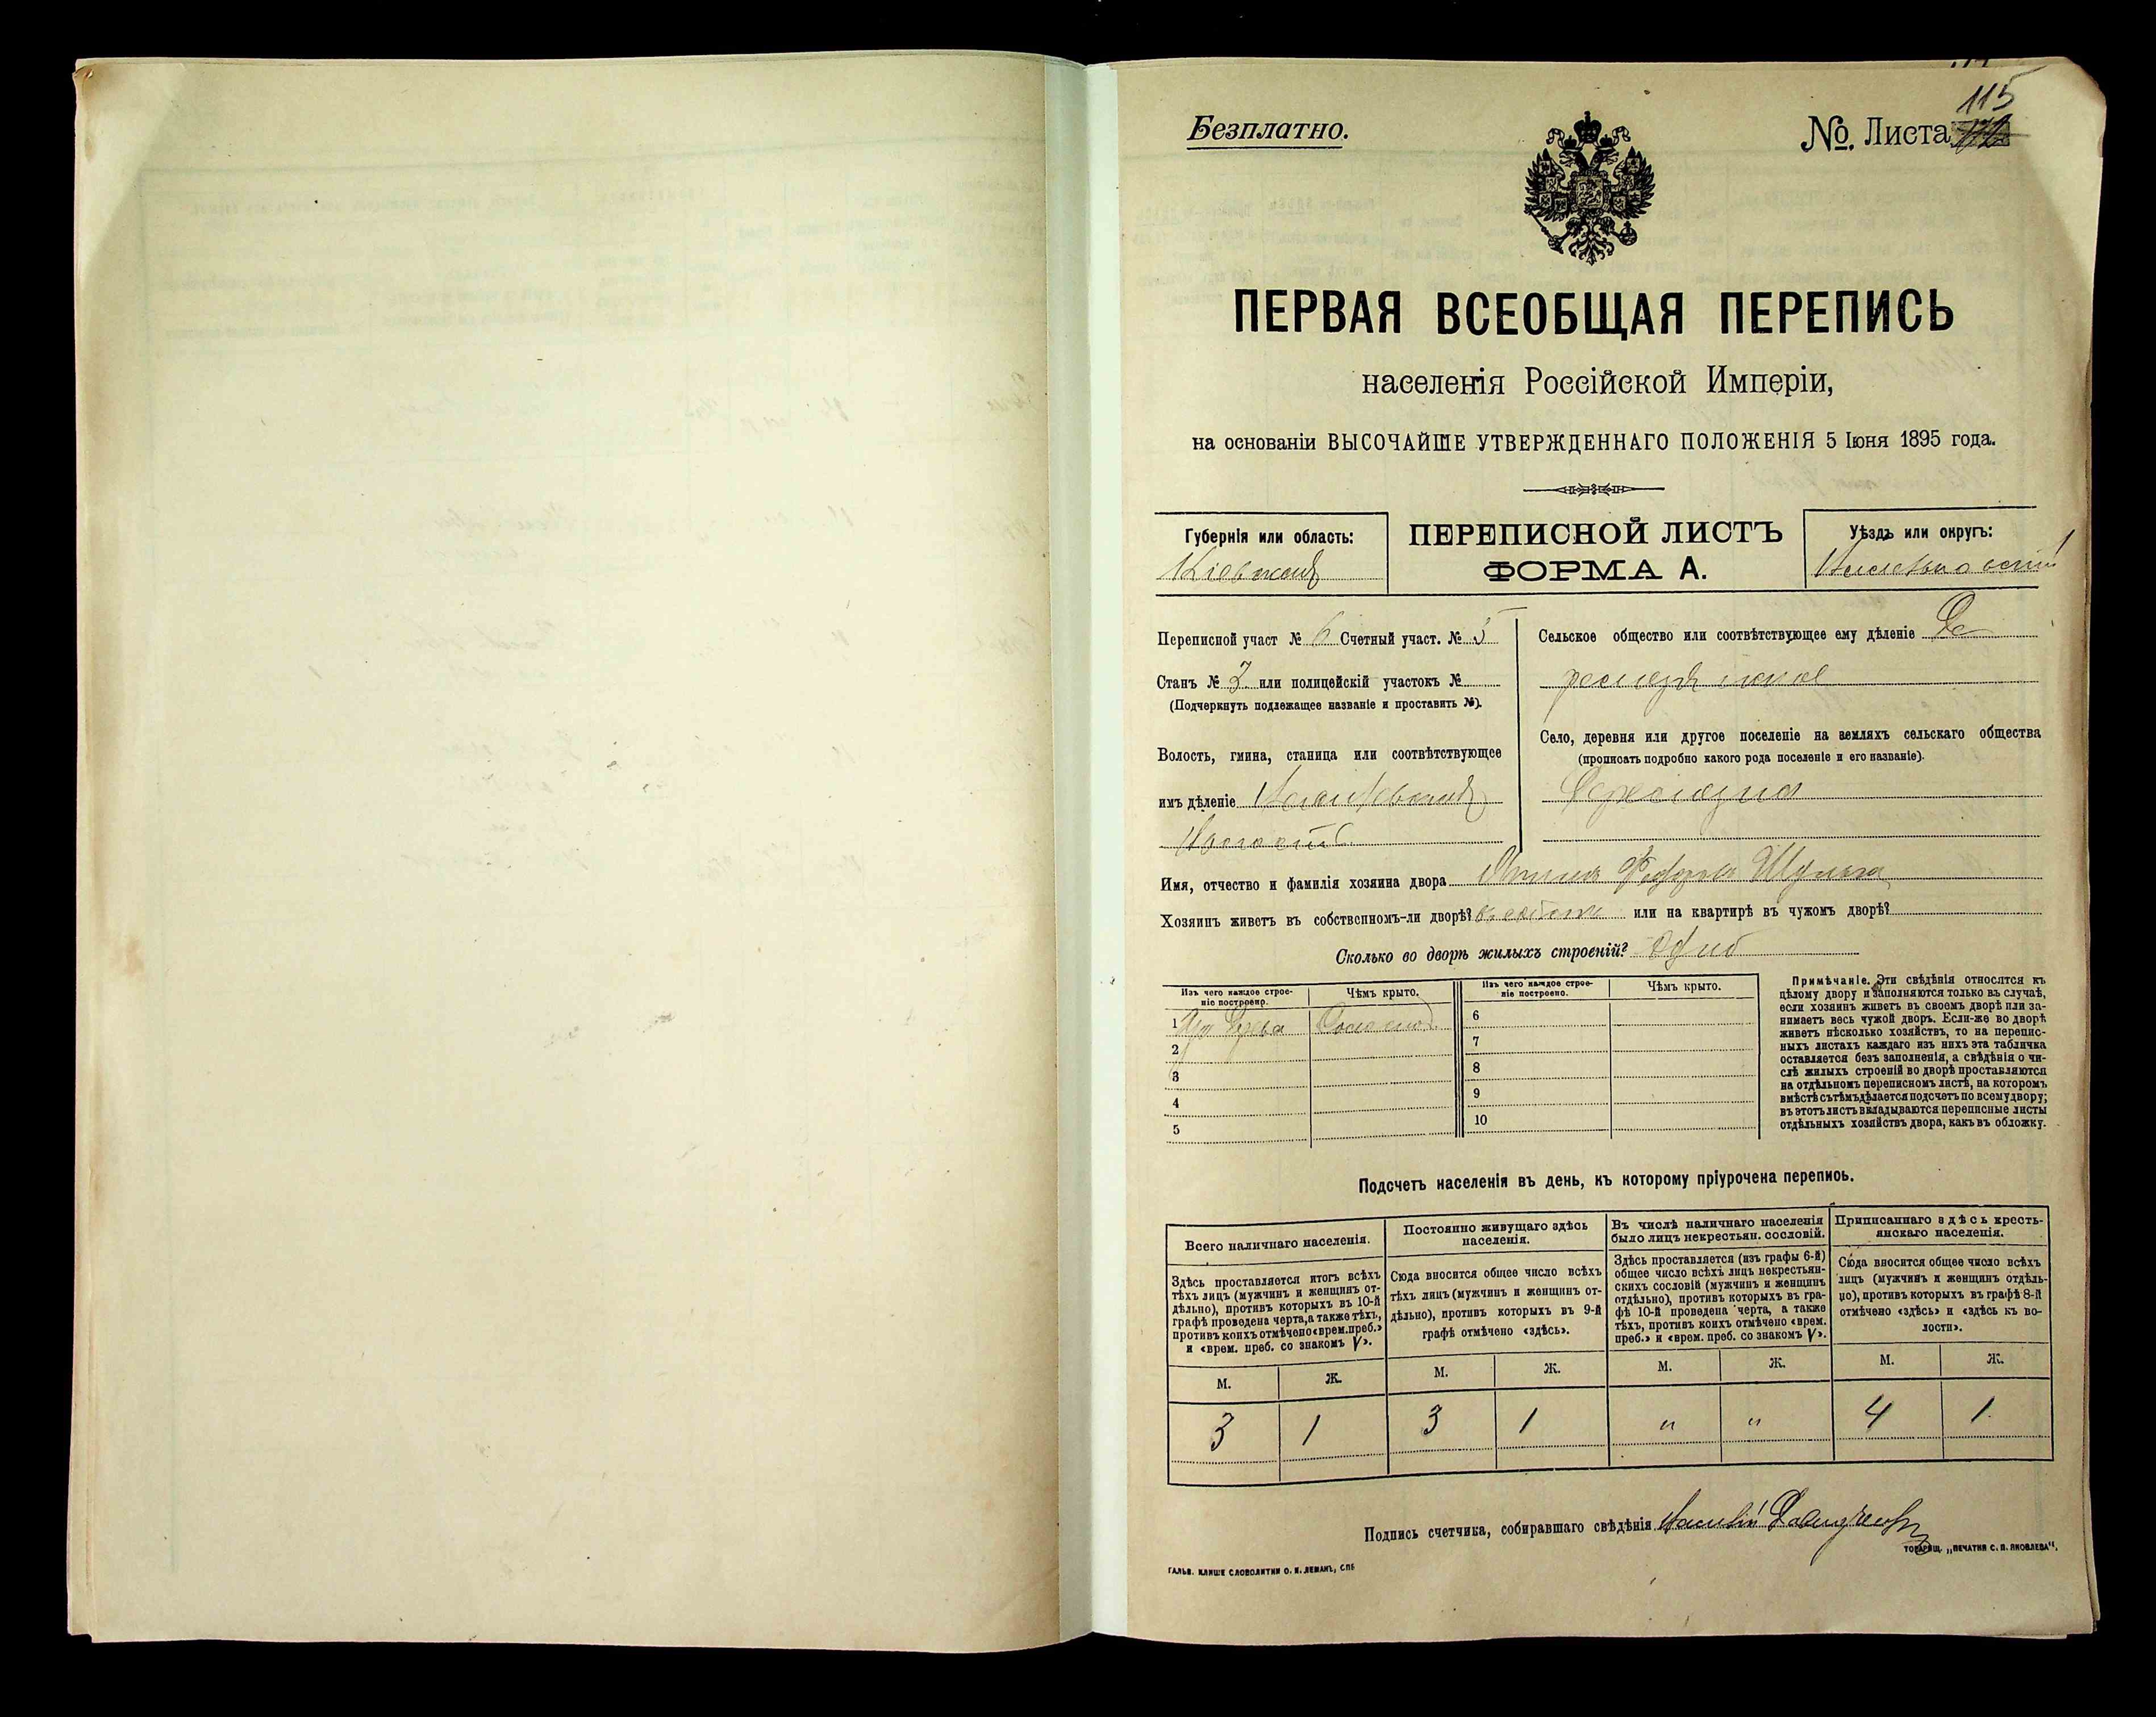 115
Безплатно.
№. Листа
ПЕРВАЯ ВСЕОБЩАЯ ПЕРЕПИСЬ
населенія Россійской Имперіи,
на основаніи ВЫСОЧАЙШЕ УТВЕРЖДЕННАГО ПОЛОЖЕНІЯ 5 Іюня 1895 года.
Губернія или область:
Кіевская
ПЕРЕПИСНОЙ ЛИСТЪ
ФОРМА А.
Уѣздъ или округъ:
Переписной участ № 6 Счетный участ. № 5
Станъ № 3 или полицейскій участокъ №
(Подчеркнуть подлежащее названіе и проставить №).
Волость, гмина, станица или соотвѣтствующее
имъ дѣленіе
Сельское общество или соотвѣтствующее ему дѣленіе
Село, деревня или другое поселеніе на земляхъ сельскаго общества
(прописать подробно какого рода поселеніе и его названіе).
Имя, отчество и фамилія хозяина двора Шульга
Хозяинъ живетъ въ собственномъ-ли дворѣ? или на квартирѣ въ чужомъ дворѣ?
Сколько во дворѣ жилыхъ строеній? Одно
Изъ чего каждое строе-
ніе построено.
Чѣмъ крыто.
Изъ чего каждое строе-
ніе построено.
Чѣмъ крыто.
1 Изъ дерева Соломой
2
3
4
5
6
7
8
9
10
Примѣчаніе. Эти свѣдѣнія относятся къ
цѣлому двору и заполняются только въ случаѣ,
если хозяинъ живетъ въ своемъ дворѣ или за-
нимаетъ весь чужой дворъ. Если-же во дворѣ
живетъ нѣсколько хозяйствъ, то на перепис-
ныхъ листахъ каждаго изъ нихъ эта табличка
оставляется безъ заполненія, а свѣдѣнія о чи-
слѣ жилыхъ строеній во дворѣ проставляются
на отдѣльномъ переписномъ листѣ, на которомъ
вмѣстѣ съ тѣмъ дѣлается подсчетъ по всему двору;
въ этотъ листъ вкладываются переписные листы
отдѣльныхъ хозяйствъ двора, какъ въ обложку.
Подсчетъ населенія въ день, къ которому пріурочена перепись.
Всего наличнаго населенія.
Здѣсь проставляется итогъ всѣхъ
тѣхъ лицъ (мужчинъ и женщинъ от-
дѣльно), противъ которыхъ въ 10-й
графѣ проведена черта, а также тѣхъ,
противъ коихъ отмѣчено «врем. преб.»
и «врем. преб. со знакомъ V».
Постоянно живущаго здѣсь
населенія.
Сюда вносится общее число всѣхъ
тѣхъ лицъ (мужчинъ и женщинъ от-
дѣльно), противъ которыхъ въ 9-й
графѣ отмѣчено «здѣсь».
Въ числѣ наличнаго населенія
было лицъ некрестьян. сословій.
Здѣсь проставляется (изъ графы 6-й)
общее число всѣхъ лицъ некрестьян-
скихъ сословій (мужчинъ и женщинъ
отдѣльно), противъ которыхъ въ гра-
фѣ 10-й проведена черта, а также
тѣхъ, противъ коихъ отмѣчено «врем.
преб.» и «врем. преб. со знакомъ V».
Приписаннаго здѣсь кресть-
янскаго населенія.
Сюда вносится общее число всѣхъ
лицъ (мужчинъ и женщинъ отдѣль-
но), противъ которыхъ въ графѣ 8-й
отмѣчено «здѣсь» и «здѣсь къ во-
лости».
М. Ж. М. Ж. М. Ж. М. Ж.
3 1 3 1 " " 4 1
Подпись счетчика, собиравшаго свѣдѣнія
ТОВАРИЩ. „ПЕЧАТНЯ С. П. ЯКОВЛЕВА".
ГАЛЬВ. КЛИШЕ СЛОВОЛИТНИ О. И. ЛЕМАНЪ, СПБ